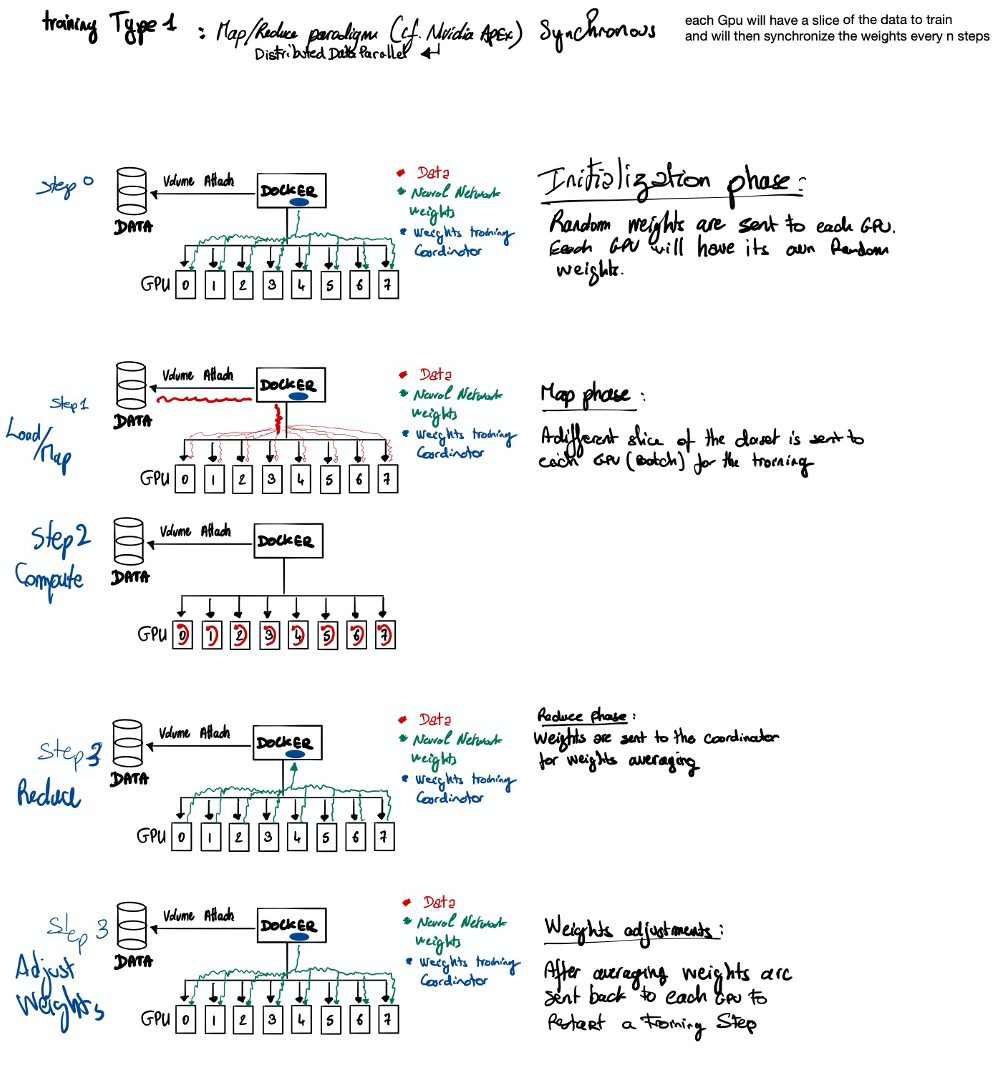 training Type 1 : Map/Reduce paradigm (cf. Nvidia Apex) Synchronous
Distributed Data Parallel
each Gpu will have a slice of the data to train
and will then synchronize the weights every n steps
Step 0
DATA
Volume Attach
DOCKER
GPU 0 1 2 3 4 5 6 7
Data
Neural Network
weights
Weights training
Coordinator
Initialization phase:
Random weights are sent to each GPU.
Each GPU will have its own Random
weights.
Step 1
Load/
Map
DATA
Volume Attach
DOCKER
GPU 0 1 2 3 4 5 6 7
Data
Neural Network
weights
Weights training
Coordinator
Map phase :
A different slice of the daset is sent to
each GPU (Batch) for the training
Step 2
Compute
DATA
Volume Attach
DOCKER
GPU 0 1 2 3 4 5 6 7
Step 3
Reduce
DATA
Volume Attach
DOCKER
GPU 0 1 2 3 4 5 6 7
Data
Neural Network
weights
Weights training
Coordinator
Reduce phase :
Weights are sent to the coordinator
for weights averaging
Step 3
Adjust
Weights
DATA
Volume Attach
DOCKER
GPU 0 1 2 3 4 5 6 7
Data
Neural Network
weights
Weights training
Coordinator
Weights adjustments :
After averaging weights are
sent back to each GPU to
Restart a Training Step